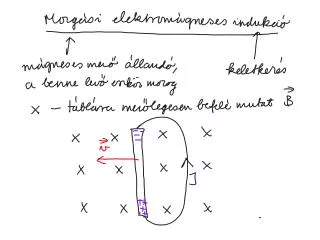 Mozgási elektromágneses indukció
mágneses mező állandó,
a benne levő eszköz mozog
keletkezés
x - táblára merőlegesen befelé mutat B
x x x x
v
x x x x
I
x x x x